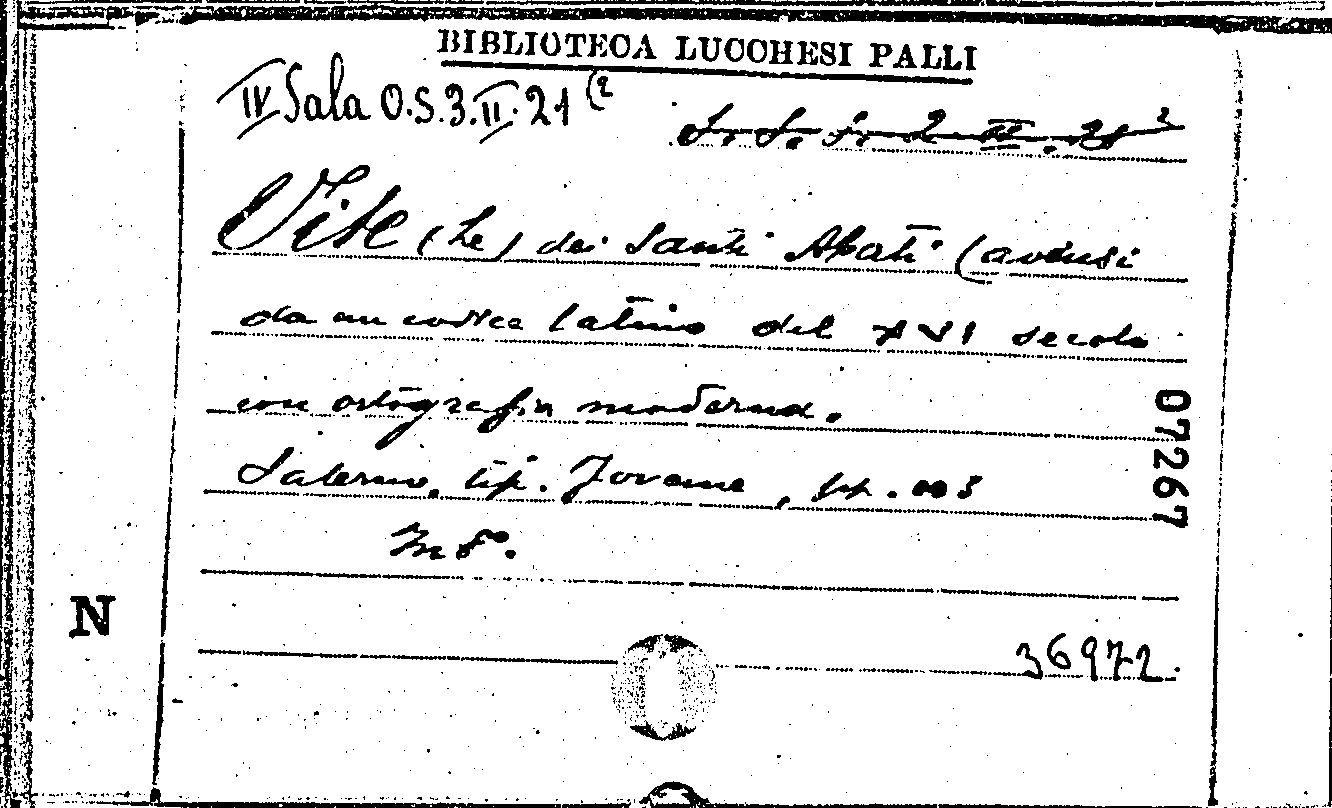 BIBLIOTECA LUCCHESI PALLI
IV Sala O.S.3.II.21 (2
Vite (Le) dei Santi Abati Cavensi
da un codice latino del XVI secolo
con ortografia moderna.
Salerno, tip. Jovane, pp.
In 8º.
07267
N
36972.